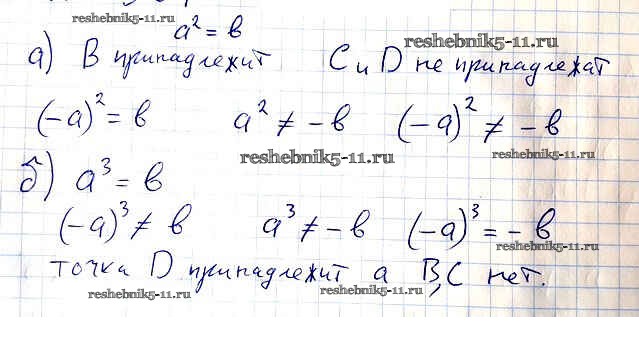 reshebnik5-11.ru
a² = b
а) В принадлежит С и D не принадлежат
reshebnik5-11.ru
(-a)² = b a² ≠ -b (-a)² ≠ -b
reshebnik5-11.ru reshebnik5-11.ru
б) a³ = b
(-a)³ ≠ b a³ ≠ -b (-a)³ = -b
reshebnik5-11.ru
точка D принадлежит а В,С нет.
reshebnik5-11.ru reshebnik5-11.ru